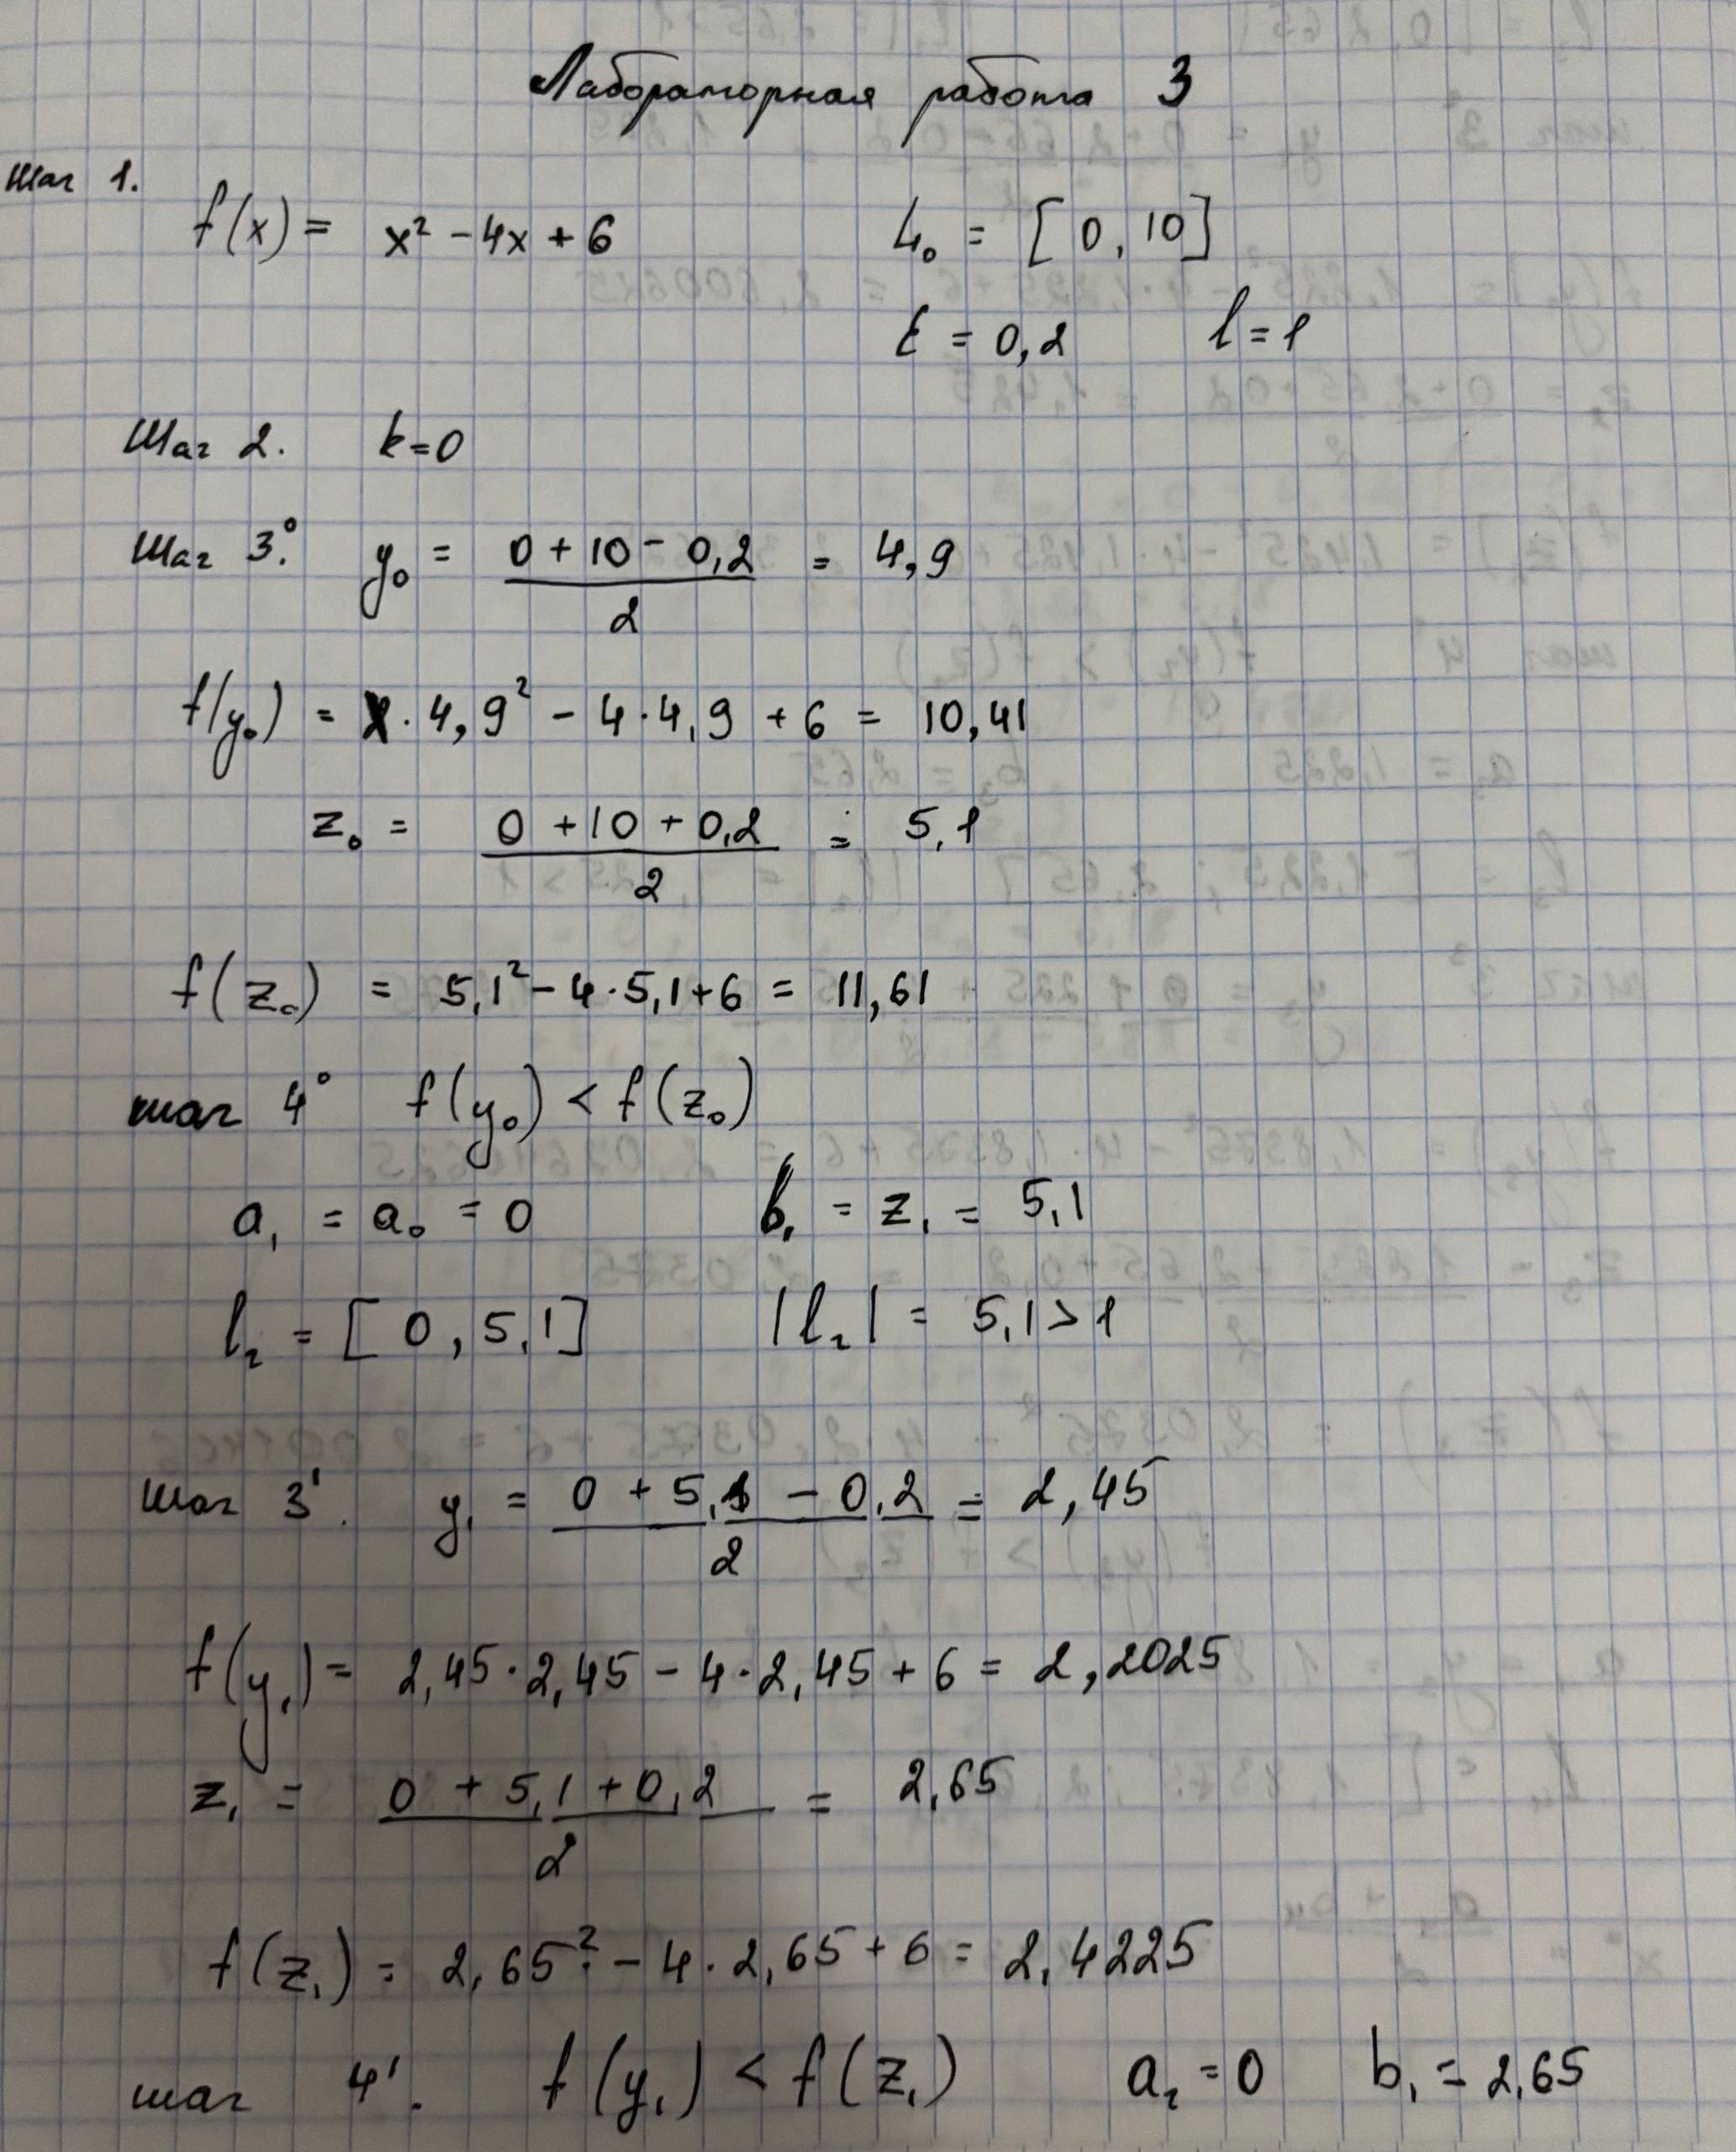 Лабораторная работа 3
Шаг 1.
f(x) = x² - 4x + 6 L₀ = [0, 10]
ε = 0,2 l = 1
Шаг 2. k=0
Шаг 3.° y₀ = (0 + 10 - 0,2)/2 = 4,9
f(y₀) = · 4,9² - 4·4,9 + 6 = 10,41
z₀ = (0 + 10 + 0,2)/2 = 5,1
f(z₀) = 5,1² - 4·5,1+6 = 11,61
шаг 4° f(y₀) < f(z₀)
a₁ = a₀ = 0 b₁ = z₁ = 5,1
l₂ = [0, 5,1] |l₂| = 5,1 > 1
Шаг 3'. y₁ = (0 + 5,1 - 0,2)/2 = 2,45
f(y₁) = 2,45·2,45 - 4·2,45 + 6 = 2,2025
z₁ = (0 + 5,1 + 0,2)/2 = 2,65
f(z₁) = 2,65² - 4·2,65 + 6 = 2,4225
шаг 4'. f(y₁) < f(z₁) a₂ = 0 b₁ = 2,65